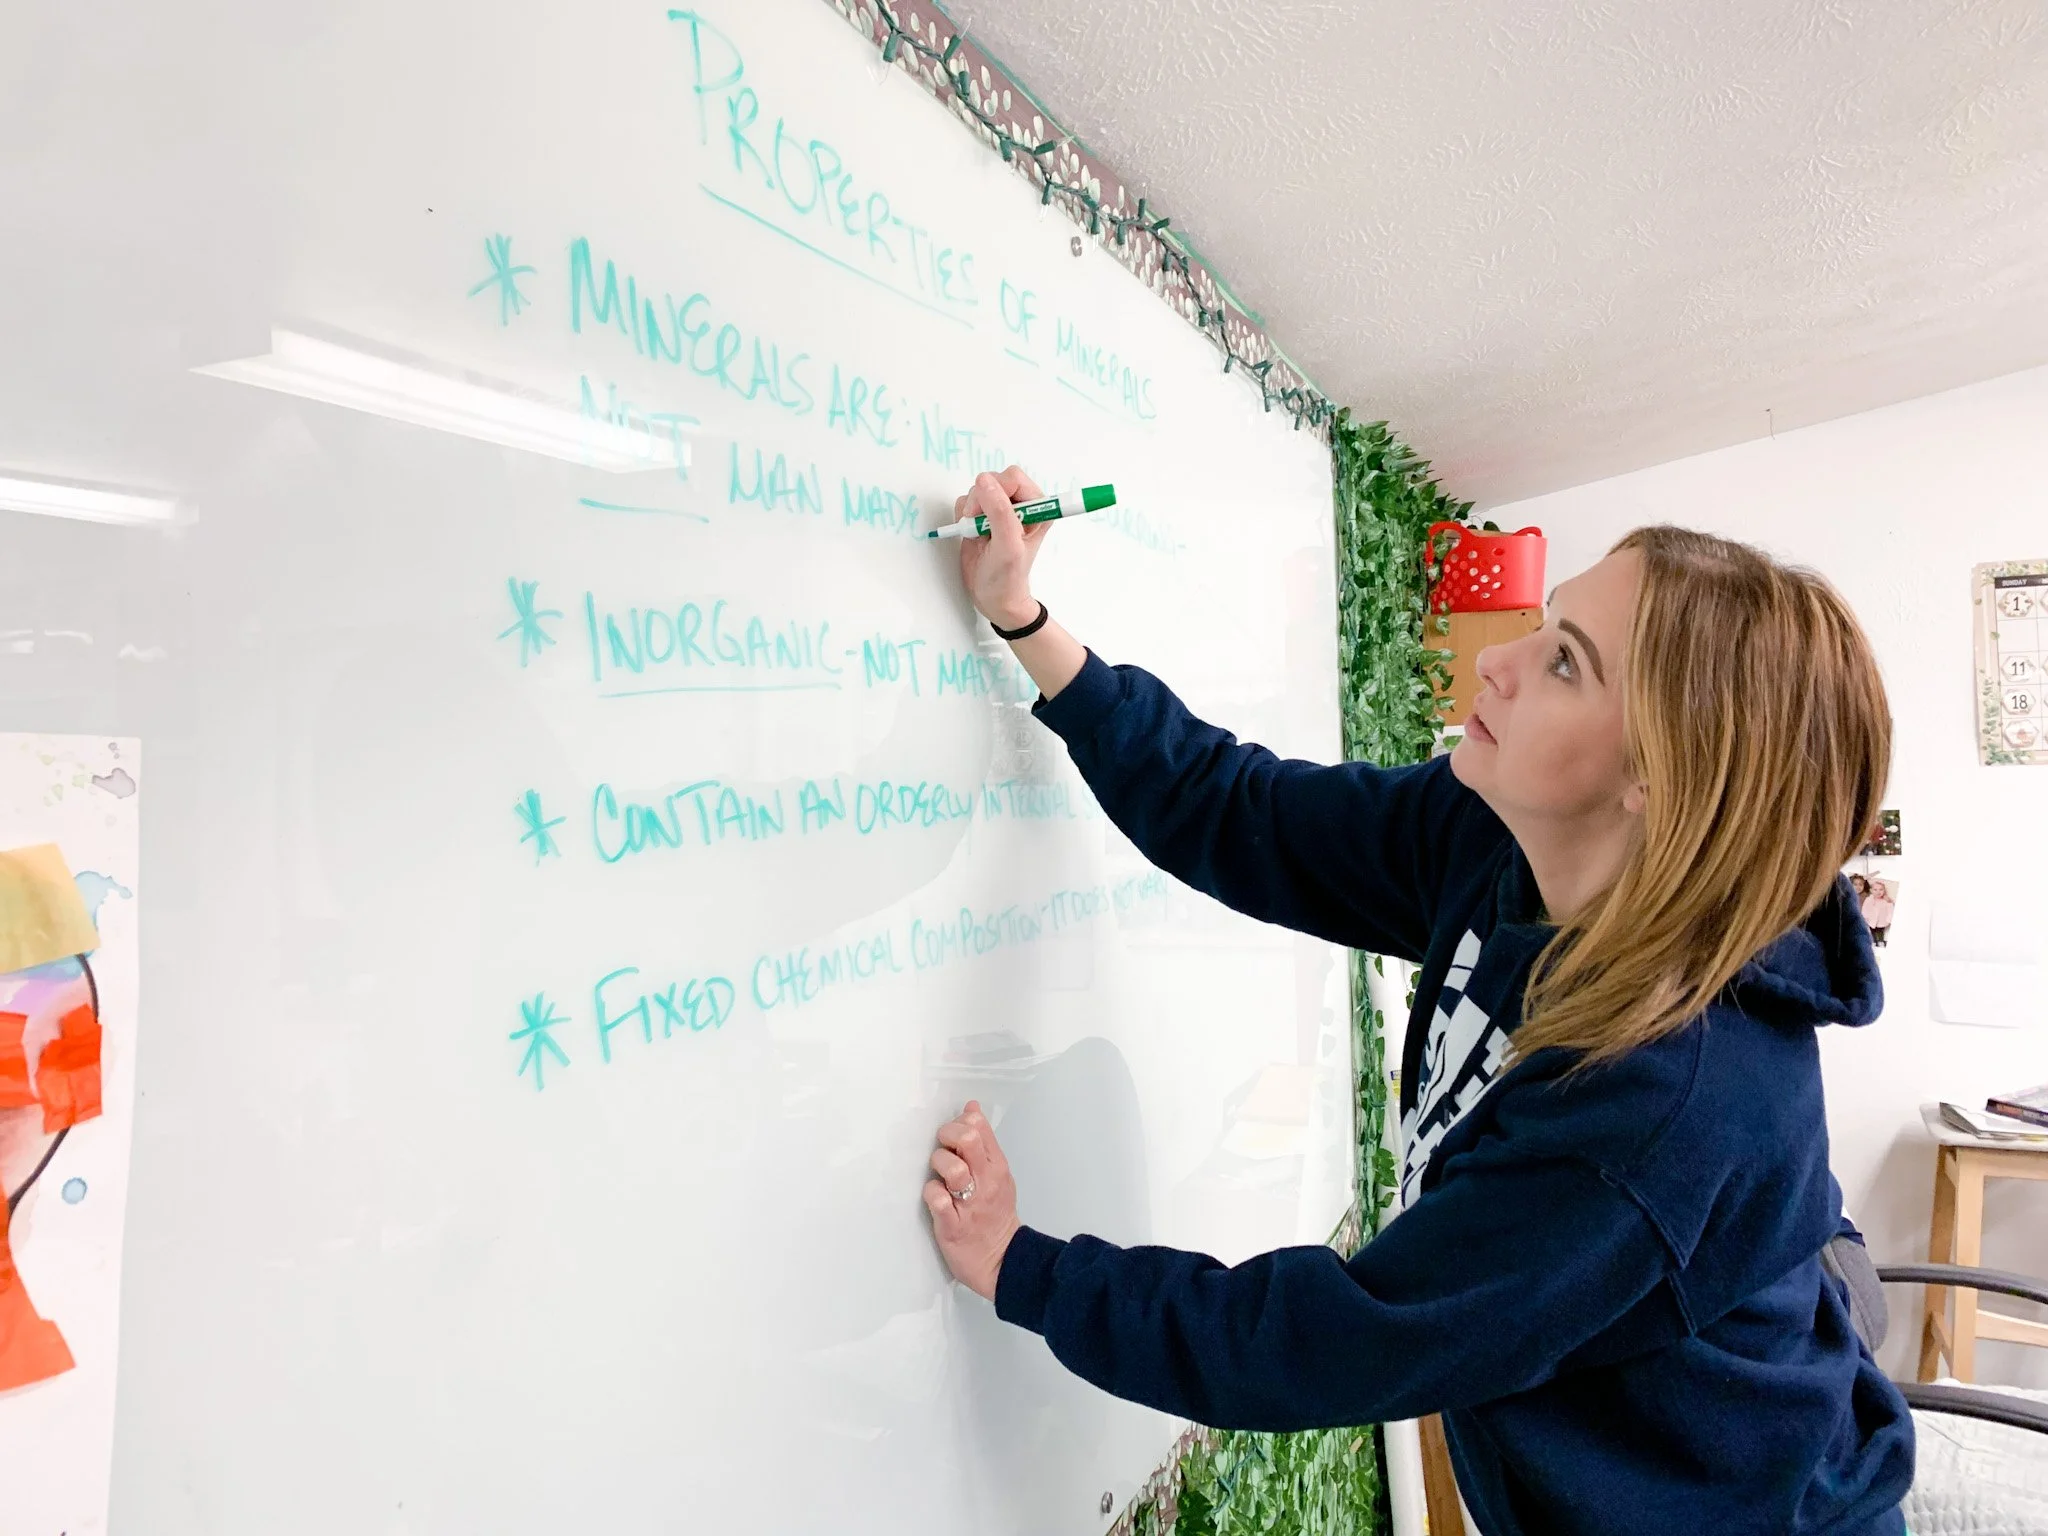 PROPERTIES OF MINERALS
* MINERALS ARE: 
NOT MAN MADE
* INORGANIC - NOT MADE
* CONTAIN AN ORDERLY INTERNAL
* FIXED CHEMICAL COMPOSITION - IT DOES NOT VARY
EXPO
SUNDAY
1
11
18